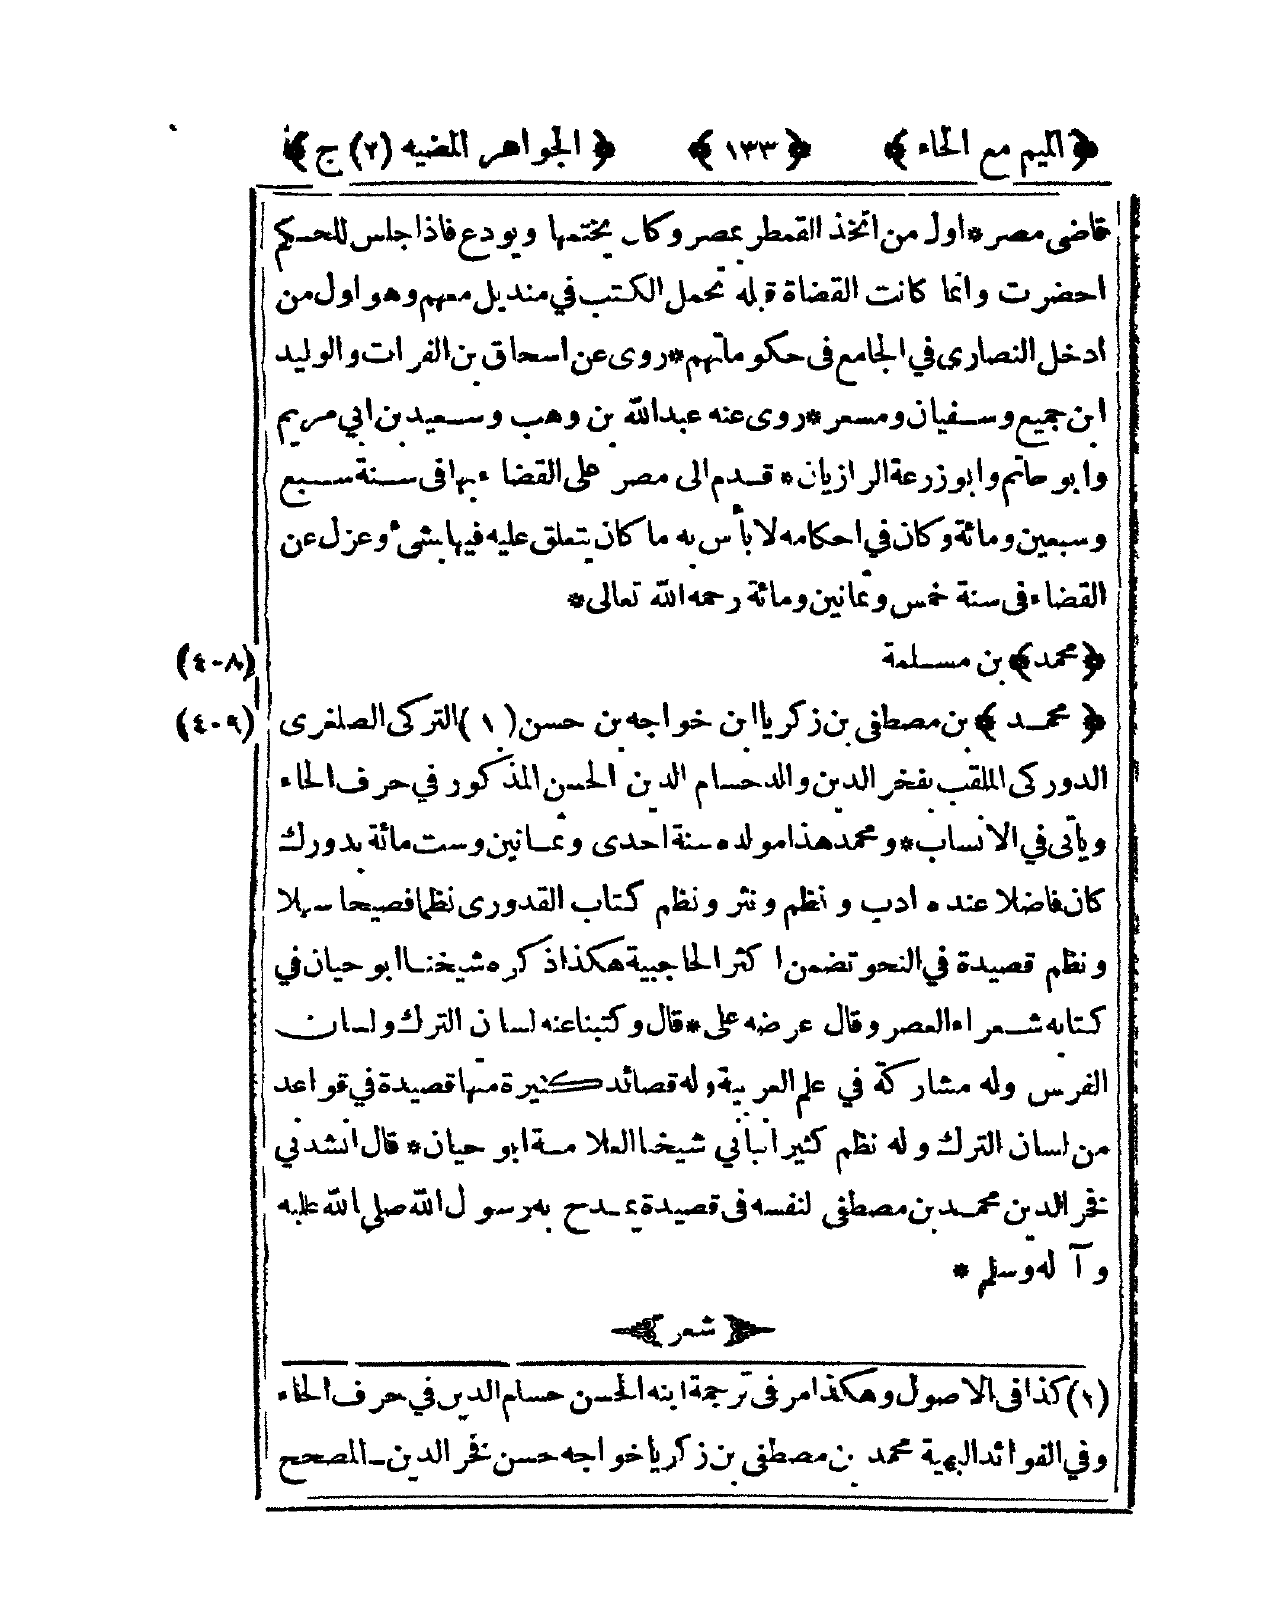 ﴿الميم مع الحاء﴾ ﴿١٣٣﴾ ﴿الجواهر المضيه (٢) ج﴾
قاضى مصر * اول من اتخذ القمطر بمصر وكان يختمها ويودع فاذا جلس للحكم
احضرت وانما كانت القضاة قبله تحمل الكتب في منديل معهم وهو اول من
ادخل النصارى في الجامع فى حكوماتهم * روى عن اسحاق بن الفرات والوليد
ابن جميع وسفيان ومسعر * روى عنه عبدالله بن وهب وسعيد بن ابي مريم
وابو حاتم وابو زرعة الرازيان * قدم الى مصر على القضاء بها فى سنة سبع
وسبعين ومائة وكان في احكامه لا بأس به ما كان يتعلق عليه فيها بشئ وعزل عن
القضاء فى سنة خمس وثمانين ومائة رحمه الله تعالى *
﴿محمد﴾ بن مسلمة (٤٠٨)
﴿محمد﴾ بن مصطفى بن زكريا ابن خواجه بن حسن (١) التركى الصلغرى (٤٠٩)
الدوركى الملقب بفخر الدين والد حسام الدين الحسن المذكور في حرف الحاء
ويأتى في الانساب * ومحمد هذا مولده سنة احدى وثمانين وست مائة بدورك
كان فاضلا عنده ادب ونظم ونثر ونظم كتاب القدورى نظما فصيحا سهلا
ونظم قصيدة في النحو تضمن اكثر الحاجبية هكذا ذكره شيخنا ابو حيان في
كتابه شعراء العصر وقال عرضه على * قال وكتبنا عنه لسان الترك ولسان
الفرس وله مشاركة في علم العربية وله قصائد كثيرة منها قصيدة في قواعد
من لسان الترك وله نظم كثير انبأني شيخنا العلامة ابو حيان * قال انشدني
فخر الدين محمد بن مصطفى لنفسه فى قصيدة يمدح بها رسول الله صلى الله عليه
وآله وسلم *
﴿شعر﴾
(١) كذا فى الاصول وهكذا مر فى ترجمة ابنه الحسن حسام الدين في حرف الحاء
وفي الفوائد البهية محمد بن مصطفى بن زكريا خواجه حسن فخر الدين ـ المصحح